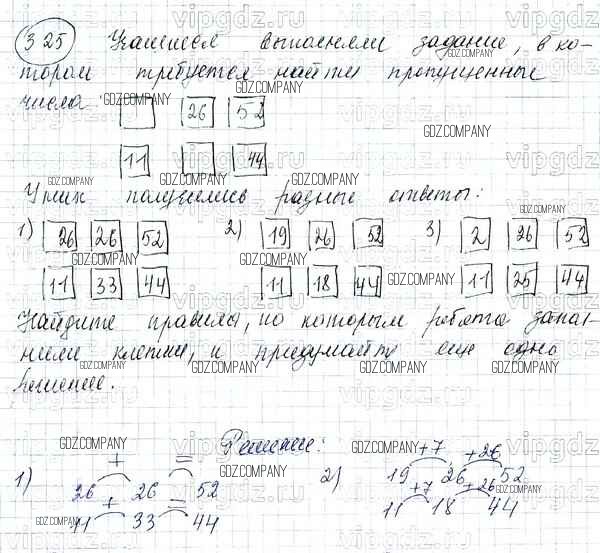 325 Учащиеся выполняли задание, в ко-
тором требуется найти пропущенные
числа
26 52
11 44
У них получились разные ответы:
1) 26 26 52 2) 19 26 52 3) 2 26 52
11 33 44 11 18 44 11 25 44
Найдите правила, по которым ребята запол-
нили клетки, и придумайте еще одно
решение.
Решение:
1) + = 2) +7 +26
26 26 52 19 26 52
+ = +7 +26
11 33 44 11 18 44
GDZ.COMPANY
vipgdz.ru